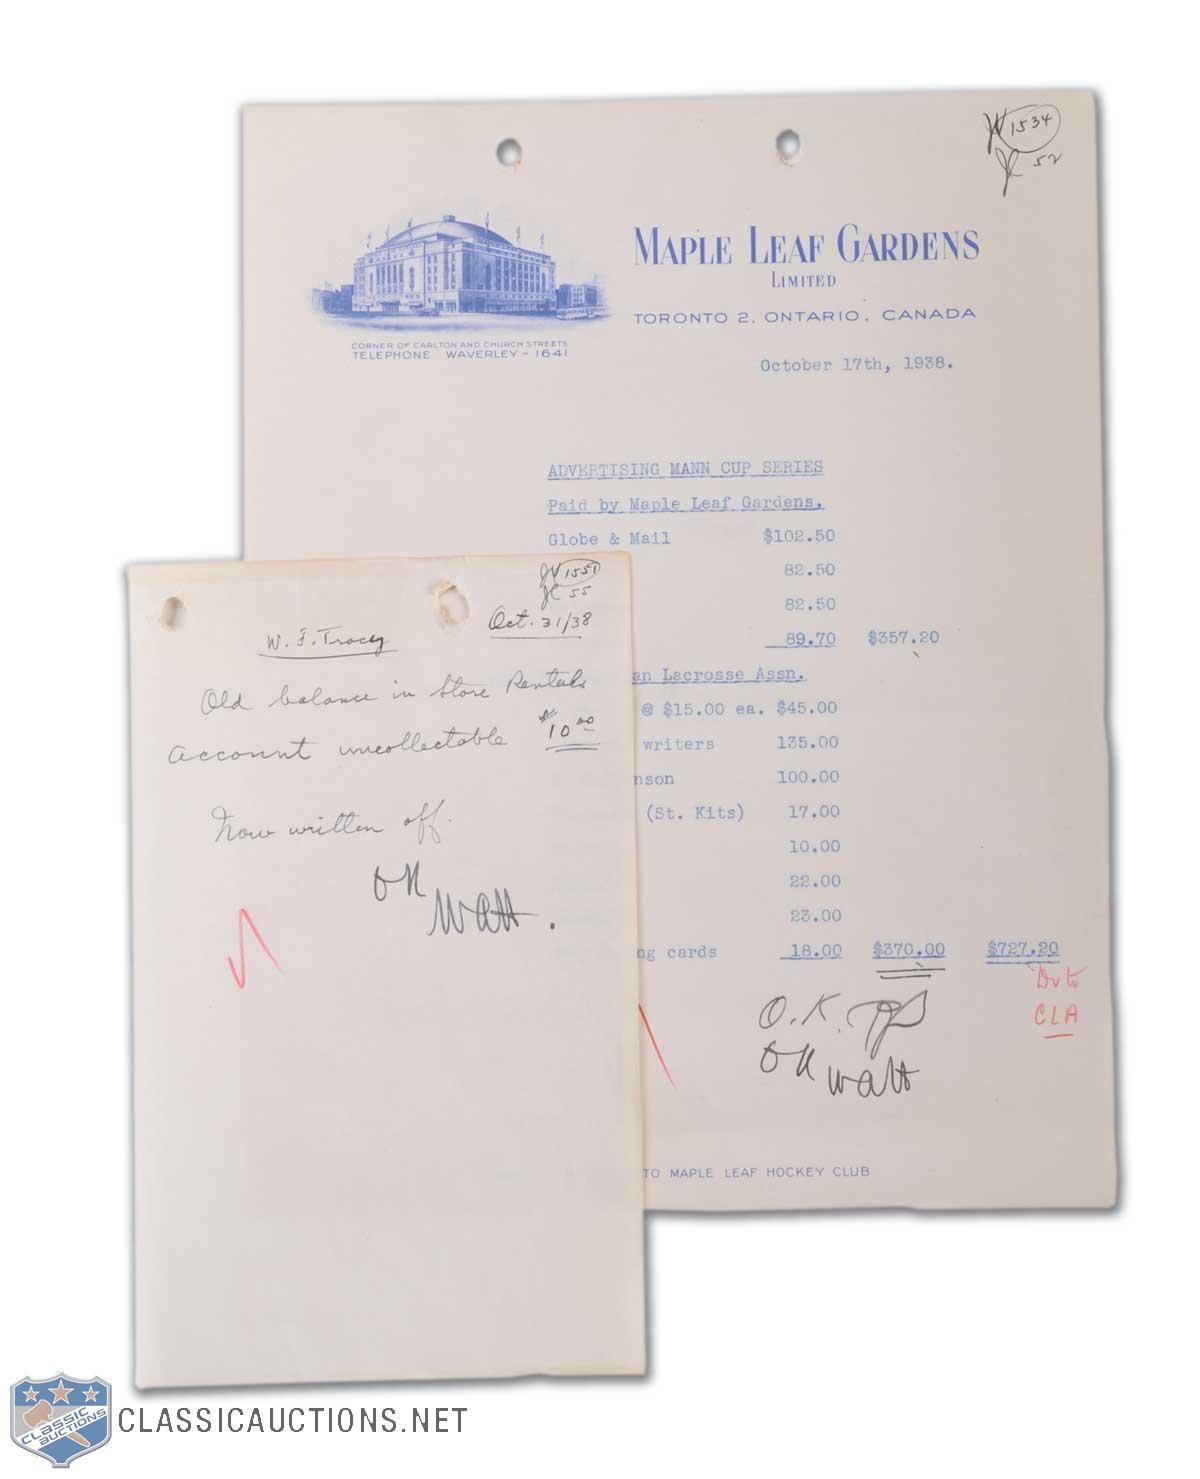 JV 1534
JC 52
MAPLE LEAF GARDENS
LIMITED
TORONTO 2, ONTARIO, CANADA
CORNER OF CARLTON AND CHURCH STREETS
TELEPHONE WAVERLEY - 1641
October 17th, 1938.
ADVERTISING MANN CUP SERIES
Paid by Maple Leaf Gardens.
Globe & Mail $102.50
82.50
82.50
89.70 $357.20
an Lacrosse Assn.
@ $15.00 ea. $45.00
writers 135.00
nson 100.00
(St. Kits) 17.00
10.00
22.00
23.00
ng cards 18.00 $370.00 $727.20
Dr to
CLA
O.K.
OK Watt
TO MAPLE LEAF HOCKEY CLUB
JV 1551
JC 55
Oct. 31/38
W. F. Tracy
Old balance in Store Rentals
account uncollectable $10.00
Now written off.
OK
Watt.
CLASSIC
AUCTIONS
CLASSICAUCTIONS.NET